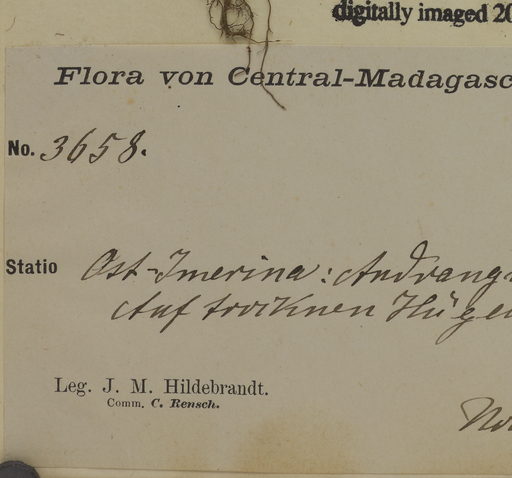 digitally imaged 20
Flora von Central-Madagasc
No. 3658.
Statio Ost-Imerina: Andrang
Auf trocknen Hüge
Leg. J. M. Hildebrandt.
Comm. C. Rensch.
No